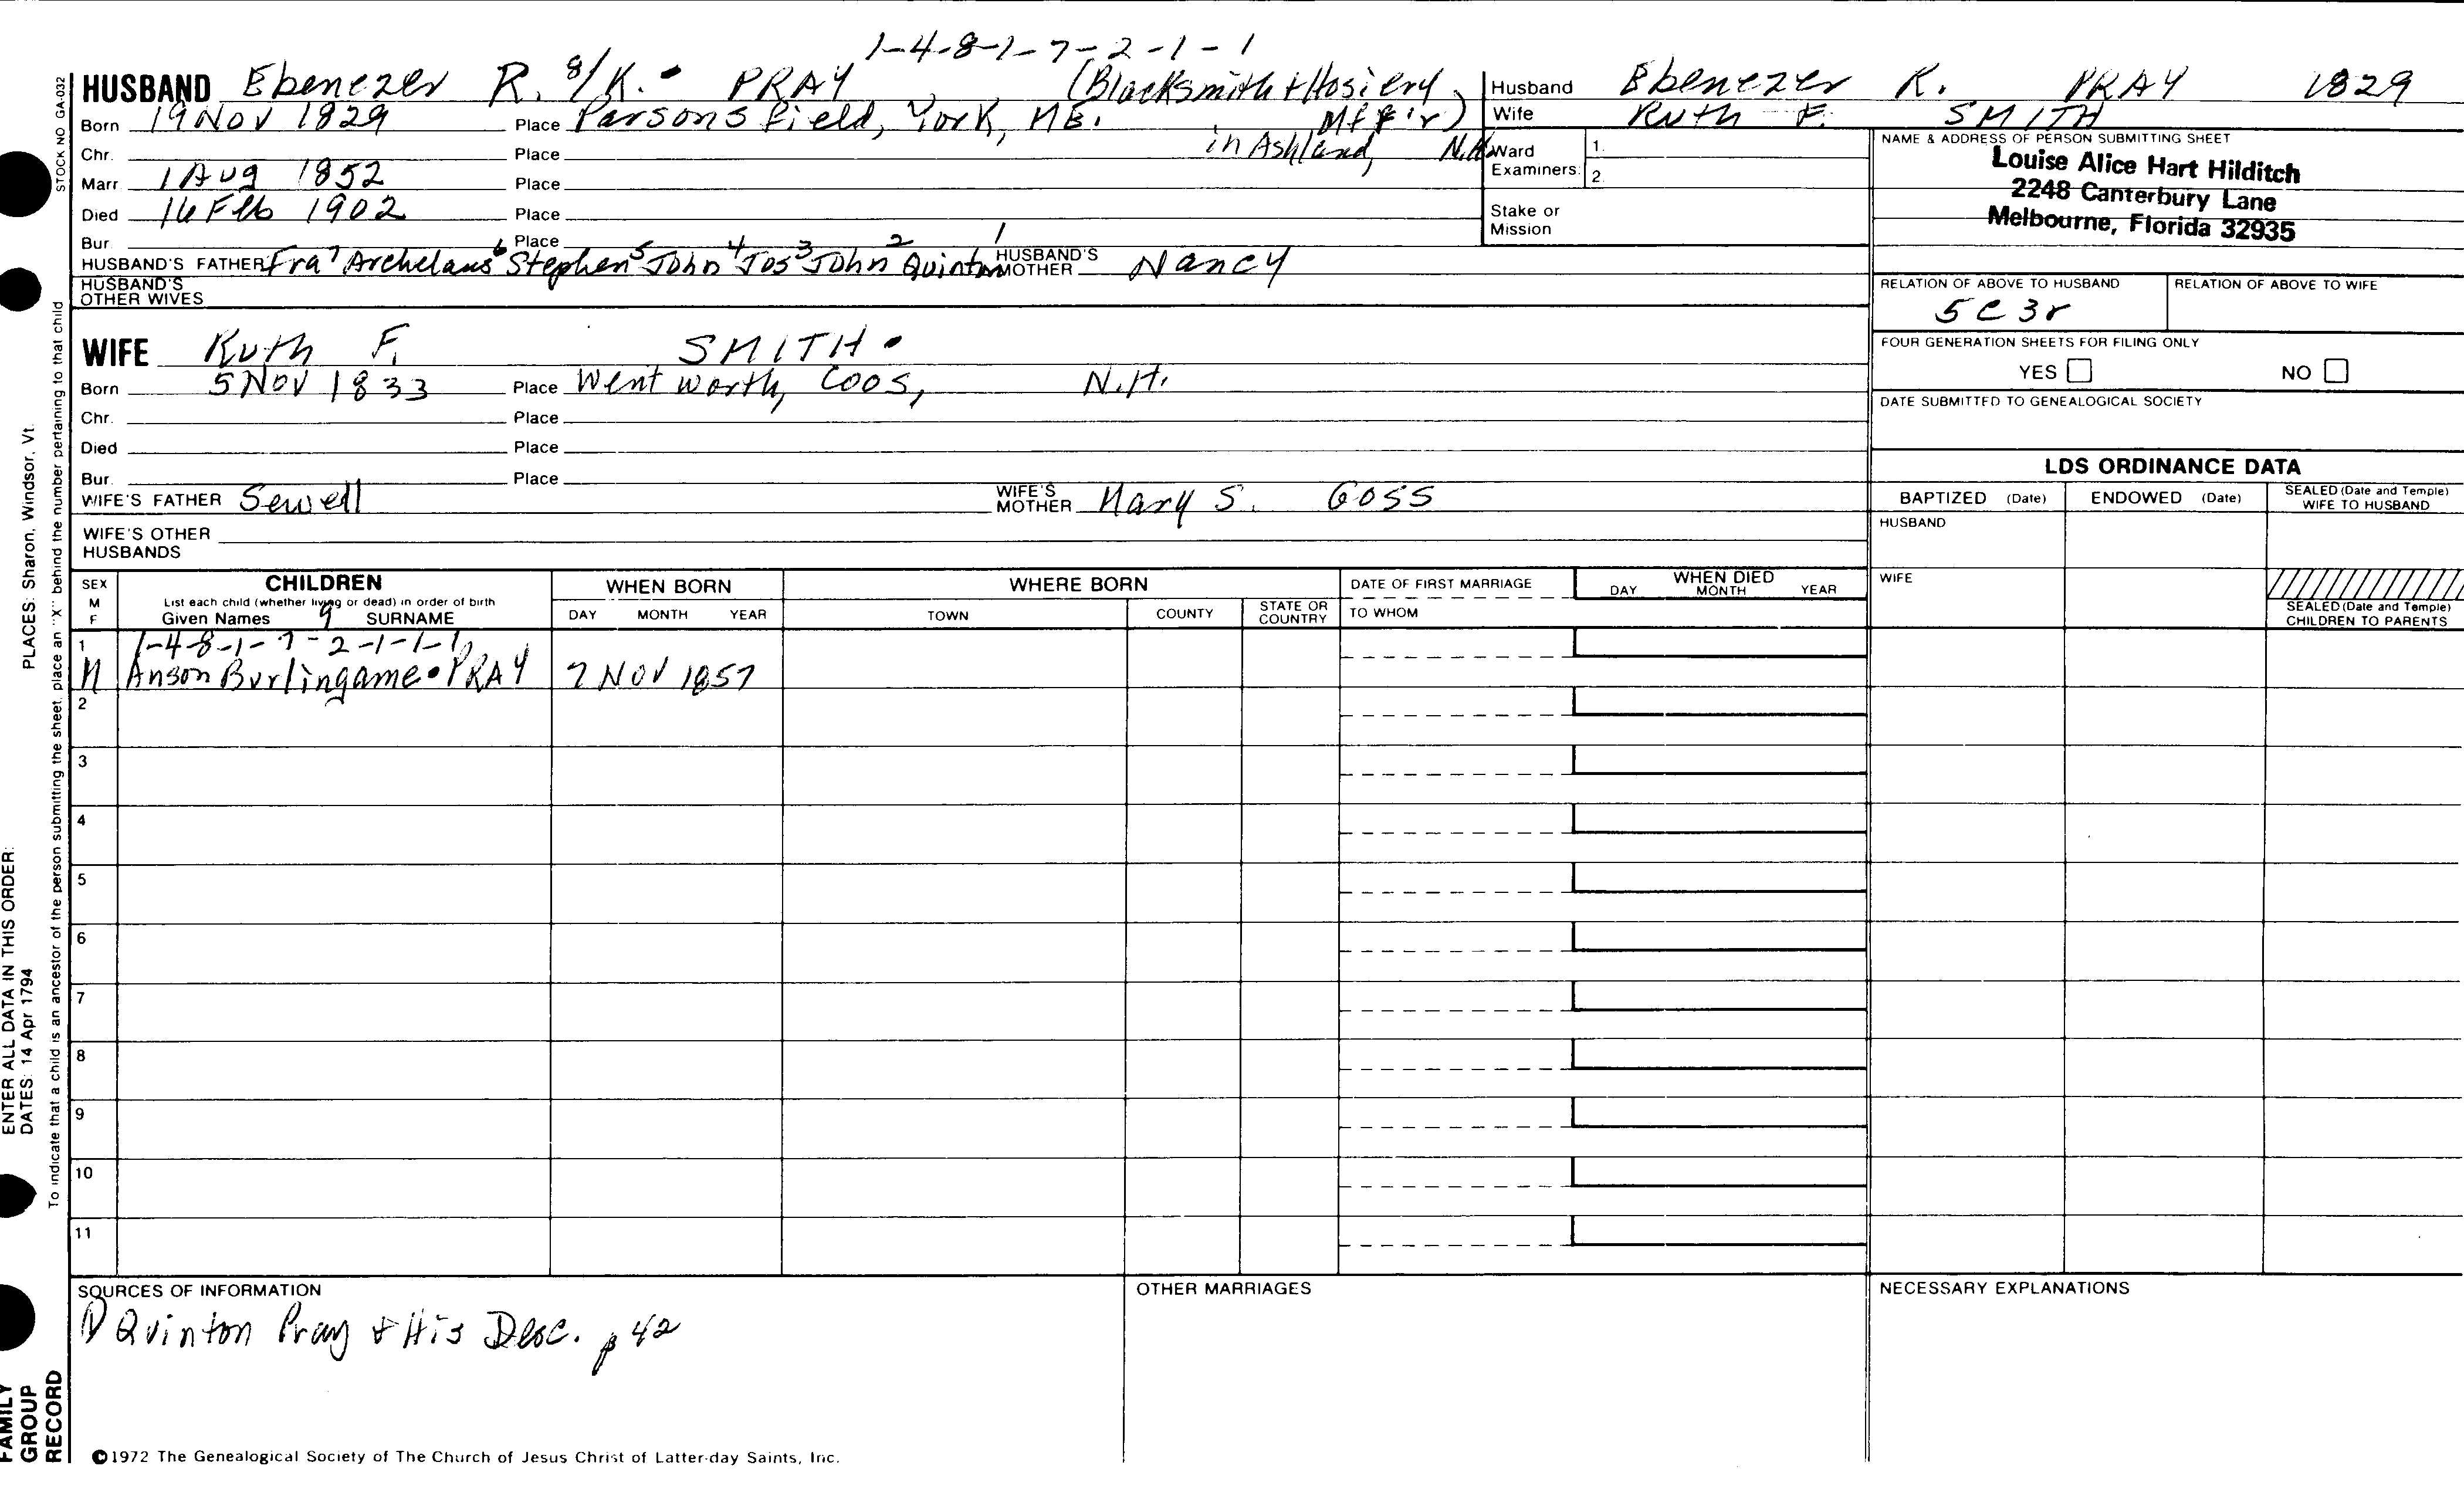 1-4-8-1-7-2-1-1
HUSBAND Ebenezer R. 8/K. PRAY (Blacksmith + Hosiery
Born 19 Nov 1829 Place Parsonsfield, York, ME. Mff'r)
in Ashland, N.H.
Chr. Place
Marr. 1 Aug 1852 Place
Died 16 Feb 1902 Place
Bur. Place
HUSBAND'S FATHER Ira 7 Archelaus 6 Stephen 5 John 4 Jos 3 John 2 Quinton 1 HUSBAND'S MOTHER Nancy
HUSBAND'S OTHER WIVES
Husband Ebenezer R. PRAY 1829
Wife Ruth F. SMITH
Ward 1.
Examiners: 2.
Stake or
Mission
NAME & ADDRESS OF PERSON SUBMITTING SHEET
Louise Alice Hart Hilditch
2248 Canterbury Lane
Melbourne, Florida 32935
RELATION OF ABOVE TO HUSBAND RELATION OF ABOVE TO WIFE
5C 3r
FOUR GENERATION SHEETS FOR FILING ONLY
YES NO
DATE SUBMITTED TO GENEALOGICAL SOCIETY
WIFE Ruth F. SMITH
Born 5 Nov 1833 Place Wentworth, Coos, N.H.
Chr. Place
Died Place
Bur. Place
WIFE'S FATHER Sewell WIFE'S MOTHER Mary S. GOSS
WIFE'S OTHER
HUSBANDS
LDS ORDINANCE DATA
BAPTIZED (Date) ENDOWED (Date) SEALED (Date and Temple) WIFE TO HUSBAND
HUSBAND
WIFE
SEALED (Date and Temple) CHILDREN TO PARENTS
SEX M F CHILDREN WHEN BORN WHERE BORN DATE OF FIRST MARRIAGE WHEN DIED
List each child (whether living or dead) in order of birth
Given Names 9 SURNAME DAY MONTH YEAR TOWN COUNTY STATE OR COUNTRY TO WHOM DAY MONTH YEAR
1 1-4-8-1-7-2-1-1-1
M Anson Burlingame PRAY 7 NOV 1857
2
3
4
5
6
7
8
9
10
11
SOURCES OF INFORMATION OTHER MARRIAGES NECESSARY EXPLANATIONS
Quinton Pray & His Desc. p 42
©1972 The Genealogical Society of The Church of Jesus Christ of Latter-day Saints, Inc.
STOCK NO GA-032
To indicate that a child is an ancestor of the person submitting the sheet, place an "X" behind the number pertaining to that child
PLACES: Sharon, Windsor, Vt.
ENTER ALL DATA IN THIS ORDER:
DATES: 14 Apr 1794
FAMILY
GROUP
RECORD